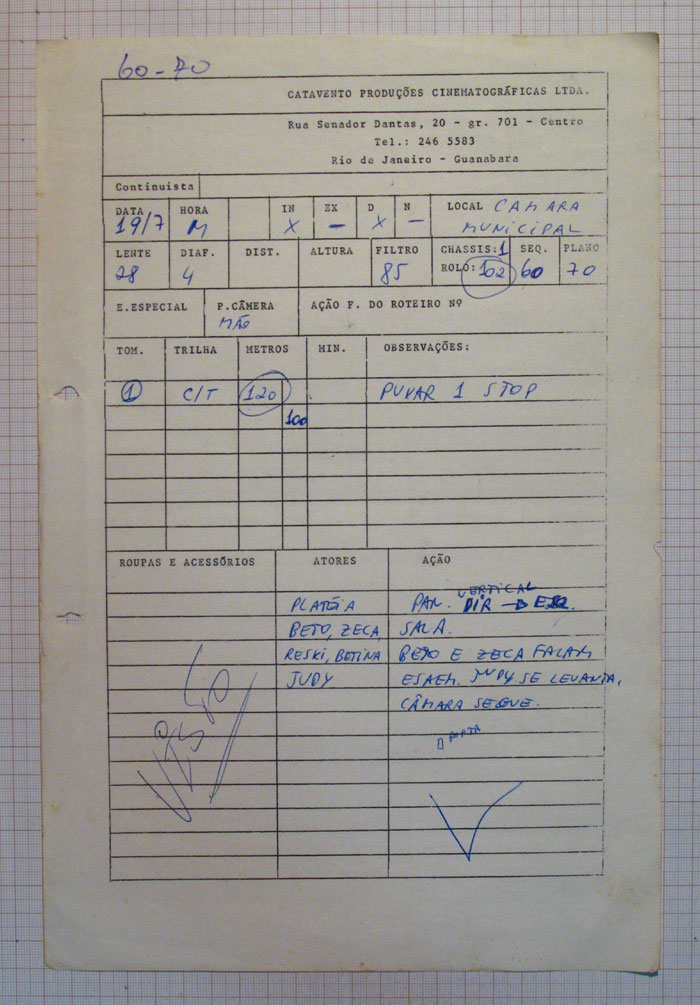 60-70
CATAVENTO PRODUÇÕES CINEMATOGRÁFICAS LTDA.
Rua Senador Dantas, 20 - gr. 701 - Centro
Tel.: 246 5583
Rio de Janeiro - Guanabara
Continuista
DATA HORA IN EX D N LOCAL CAMARA
19/7 M X - X - MUNICIPAL
LENTE DIAF. DIST. ALTURA FILTRO CHASSIS: 1 SEQ. PLANO
28 4 85 ROLO: 102 60 70
E.ESPECIAL P.CÂMERA AÇÃO F. DO ROTEIRO Nº
MÃO
TOM. TRILHA METROS MIN. OBSERVAÇÕES:
1 C/T 120 PUXAR 1 STOP
100
ROUPAS E ACESSÓRIOS ATORES AÇÃO
VERTICAL
PLATÉIA PAN. DIR → ESQ.
BETO, ZECA, SALA.
RESKI, BETINA BETO E ZECA FALAM
JUDY E SAEM. JUDY SE LEVANTA,
CÂMARA SEGUE.
PORTA
VISTO